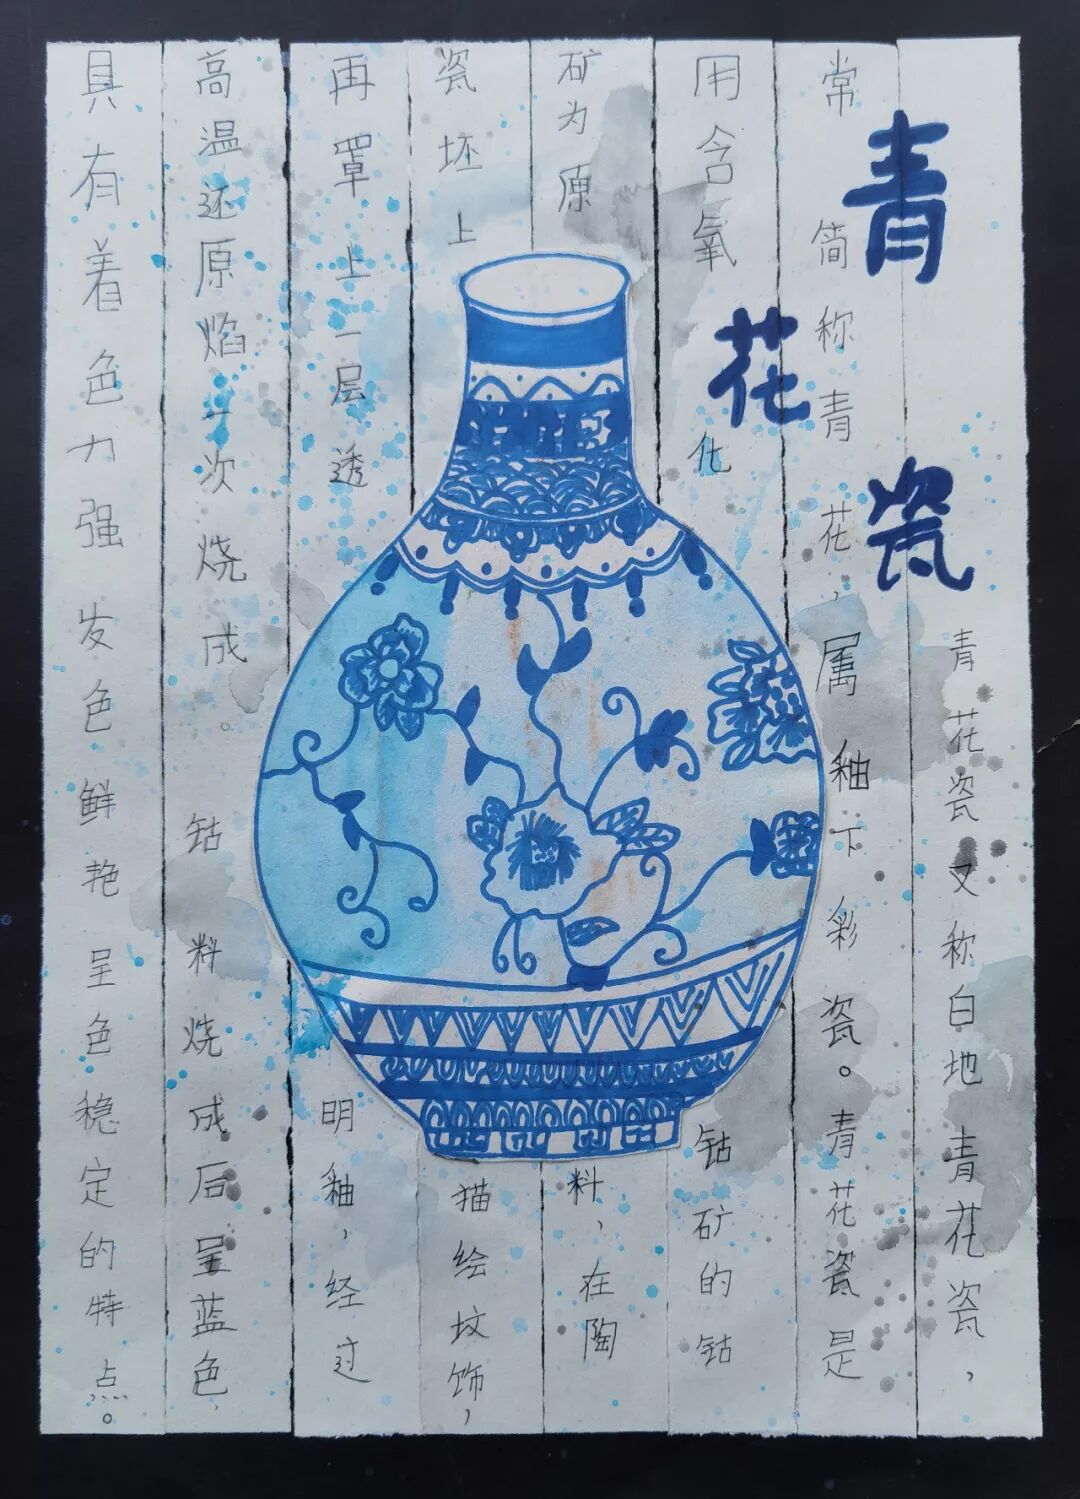 青花瓷
青花瓷又称白地青花瓷，
常简称青花，属釉下彩瓷。青花瓷是
用含氧化钴矿的钴
矿为原料，在陶
瓷坯上描绘坟饰，
再罩上一层透明釉，经过
高温还原焰一次烧成。钴料烧成后呈蓝色，
具有着色力强发色鲜艳呈色稳定的特点。